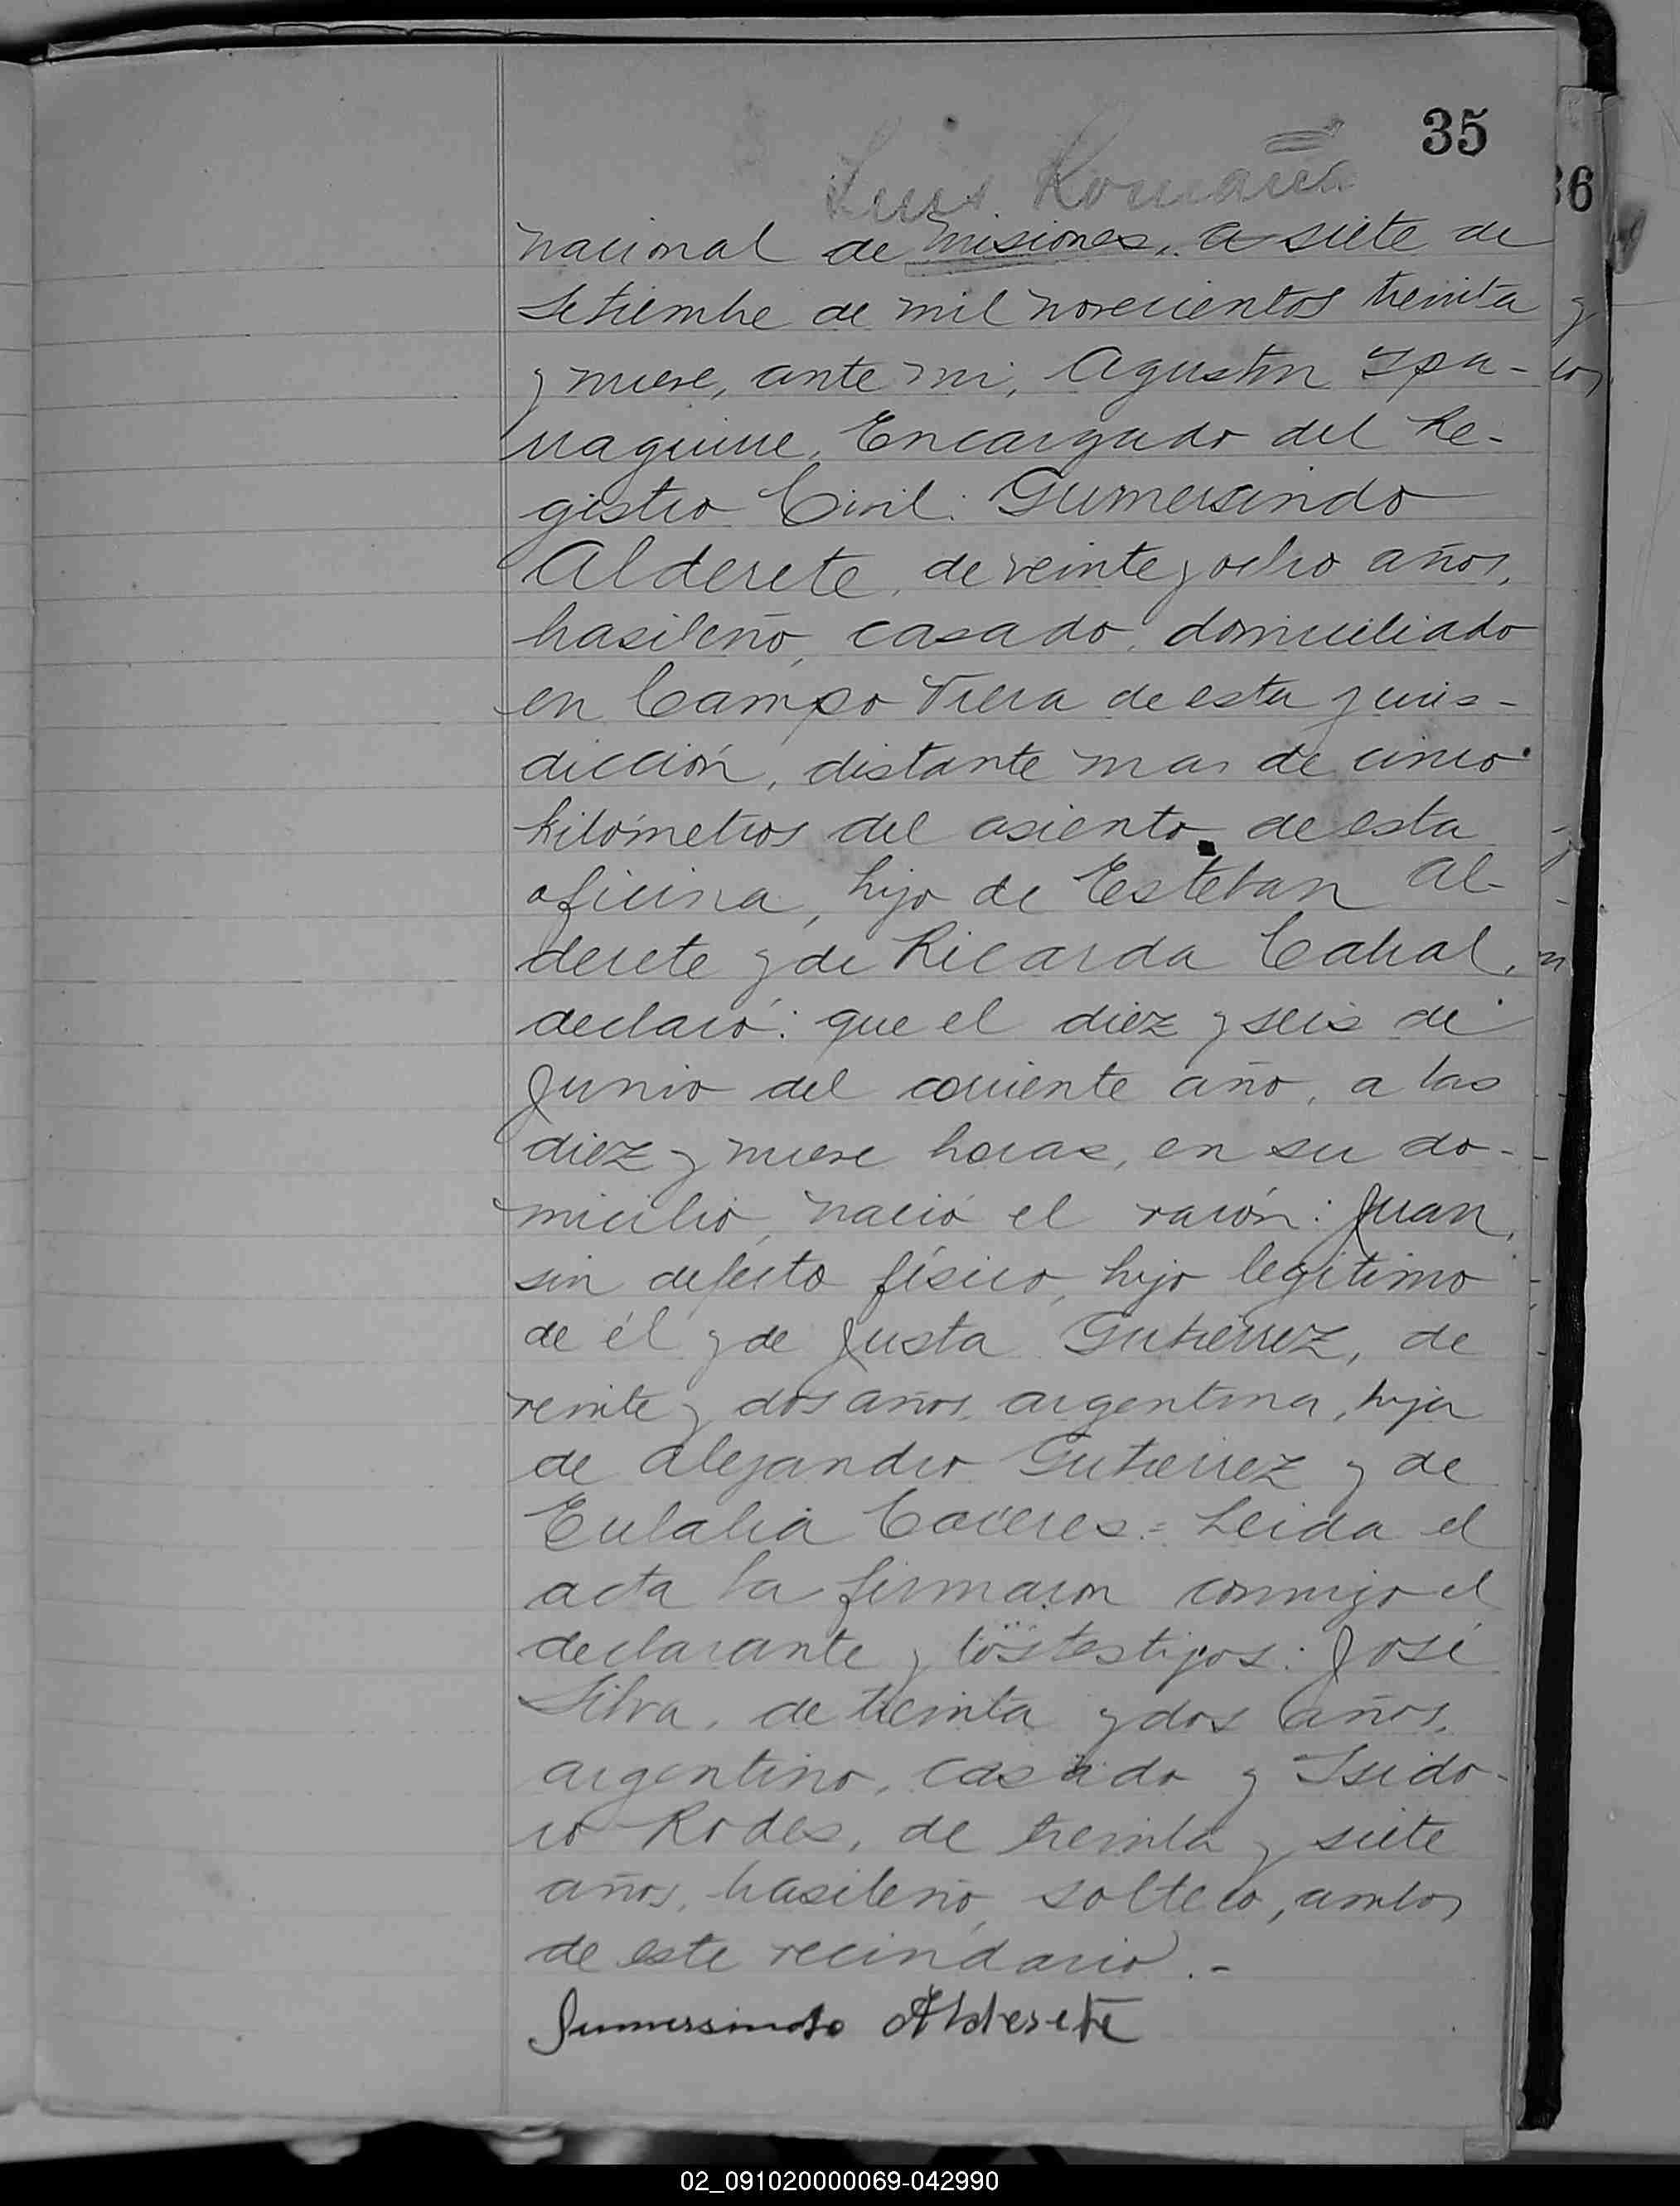 35
36
Luis Romaña
nacional de Misiones, a siete de
Setiembre de mil novecientos treinta
y nueve, ante mi, Agustin Ypa-
rraguirre, Encargado del Re-
gistro Civil: Gumersindo
Alderete, de veinte y ocho años,
brasileño, casado, domiciliado
en Campo Viera de esta juris-
dicción, distante mas de cinco
kilómetros del asiento de esta
oficina, hijo de Esteban Al-
derete y de Ricarda Cabral,
declaró: que el diez y seis de
Junio del corriente año, a las
diez y nueve horas, en su do-
micilio, nació el varón: Juan,
sin defecto físico, hijo legítimo
de él y de Justa Gutiérrez, de
veinte y dos años, argentina, hija
de Alejandro Gutierrez y de
Eulalia Caceres.= Leida el
acta la firmaron conmigo el
declarante y los testigos: José
Silva, de treinta y dos años,
argentino, casado y Isido-
ro Rodes, de treinta y siete
años, brasileño, soltero, ambos
de este vecindario.-
Gumersindo Alderete
02_091020000069-042990